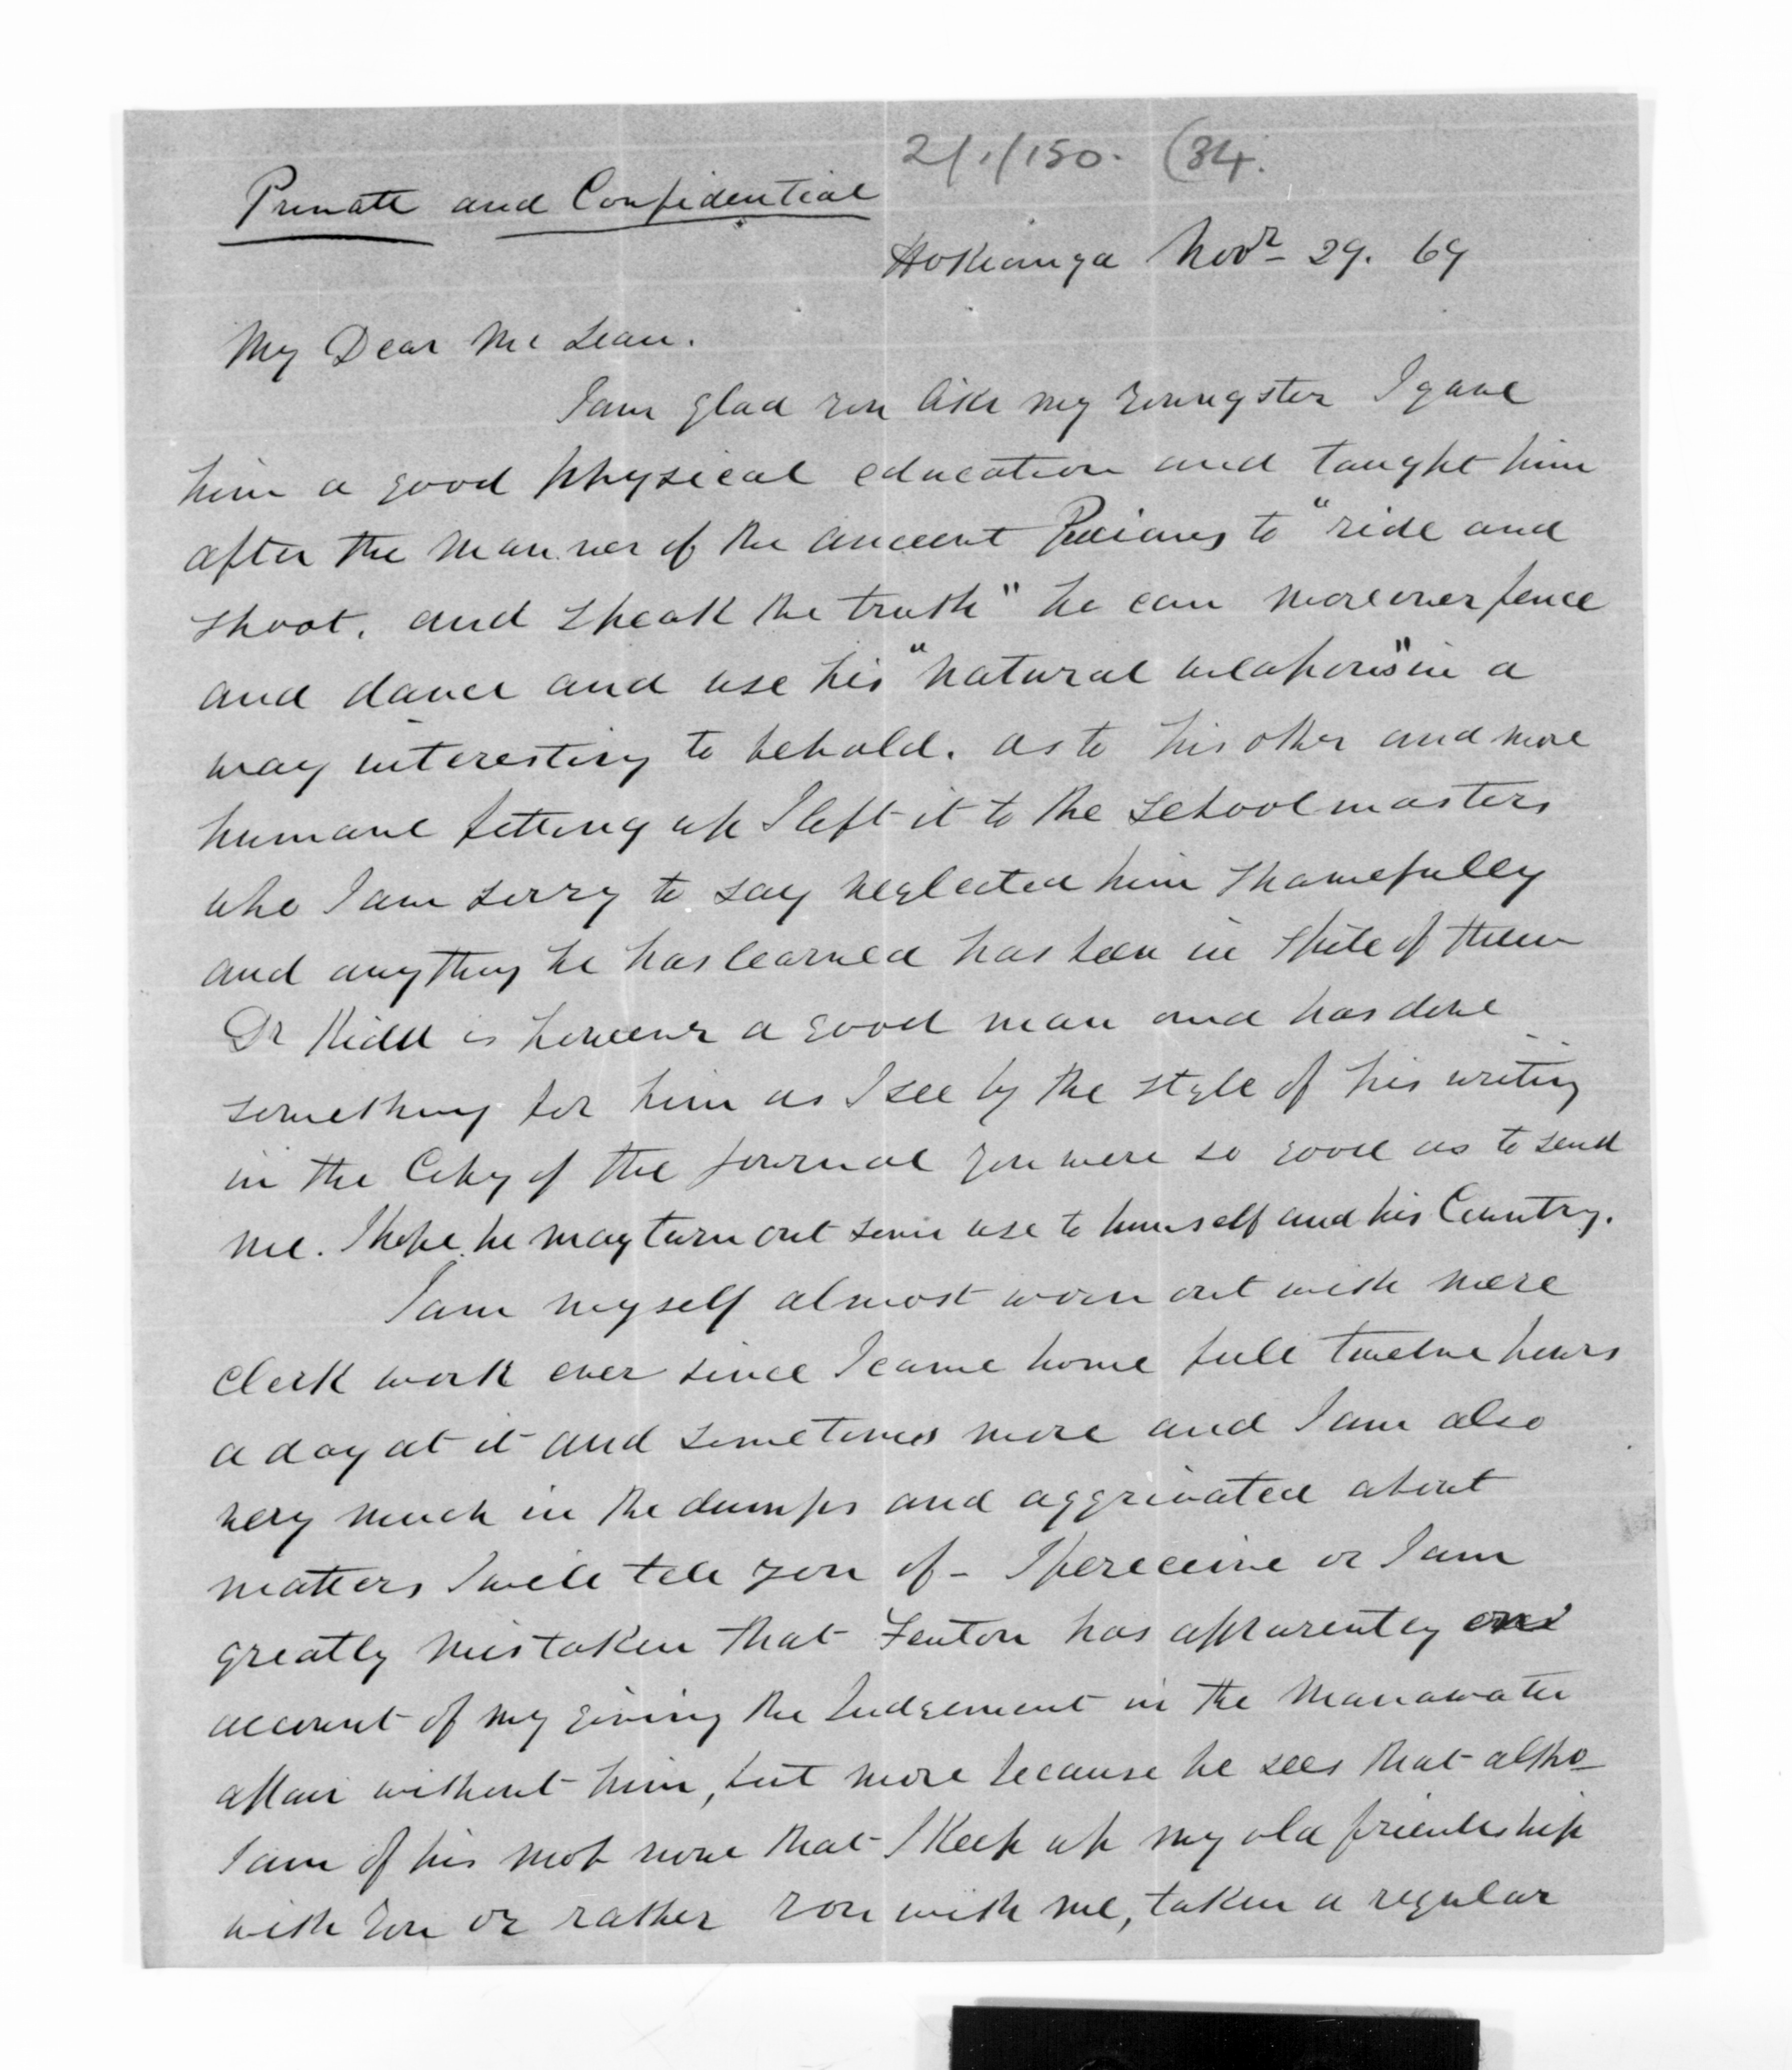 2/1/150. (84.
Private and Confidential
Hokianga Novr 29. 69
My Dear McLean.
I am glad you like my youngster I gave
him a good physical education and taught him
after the manner of the ancient Persians to "ride and
shoot, and speak the truth" he can moreover fence
and dance and use his "natural weapons" in a
way interesting to behold. as to his other and more
humane fitting up I left it to the schoolmasters
who I am sorry to say neglected him shamefully
and anything he has learned has been in spite of them
Dr Kidd is however a good man and has done
something for him as I see by the style of his writing
in the Copy of the journal you were so good as to send
me. I hope he may turn out some use to himself and his Country.
I am myself almost worn out with mere
clerk work ever since I came home full twelve hours
a day at it and sometimes more and I am also
very much in the dumps and aggrivated about
matters I will tell you of - I perceeive or I am
greatly mistaken that Fenton has apparently on
account of my giving the Judgement in the Manawatu
affair without him, but more because he sees that altho
I am of his mob now that I keep up my old friendship
with you or rather you with me, taken a regular